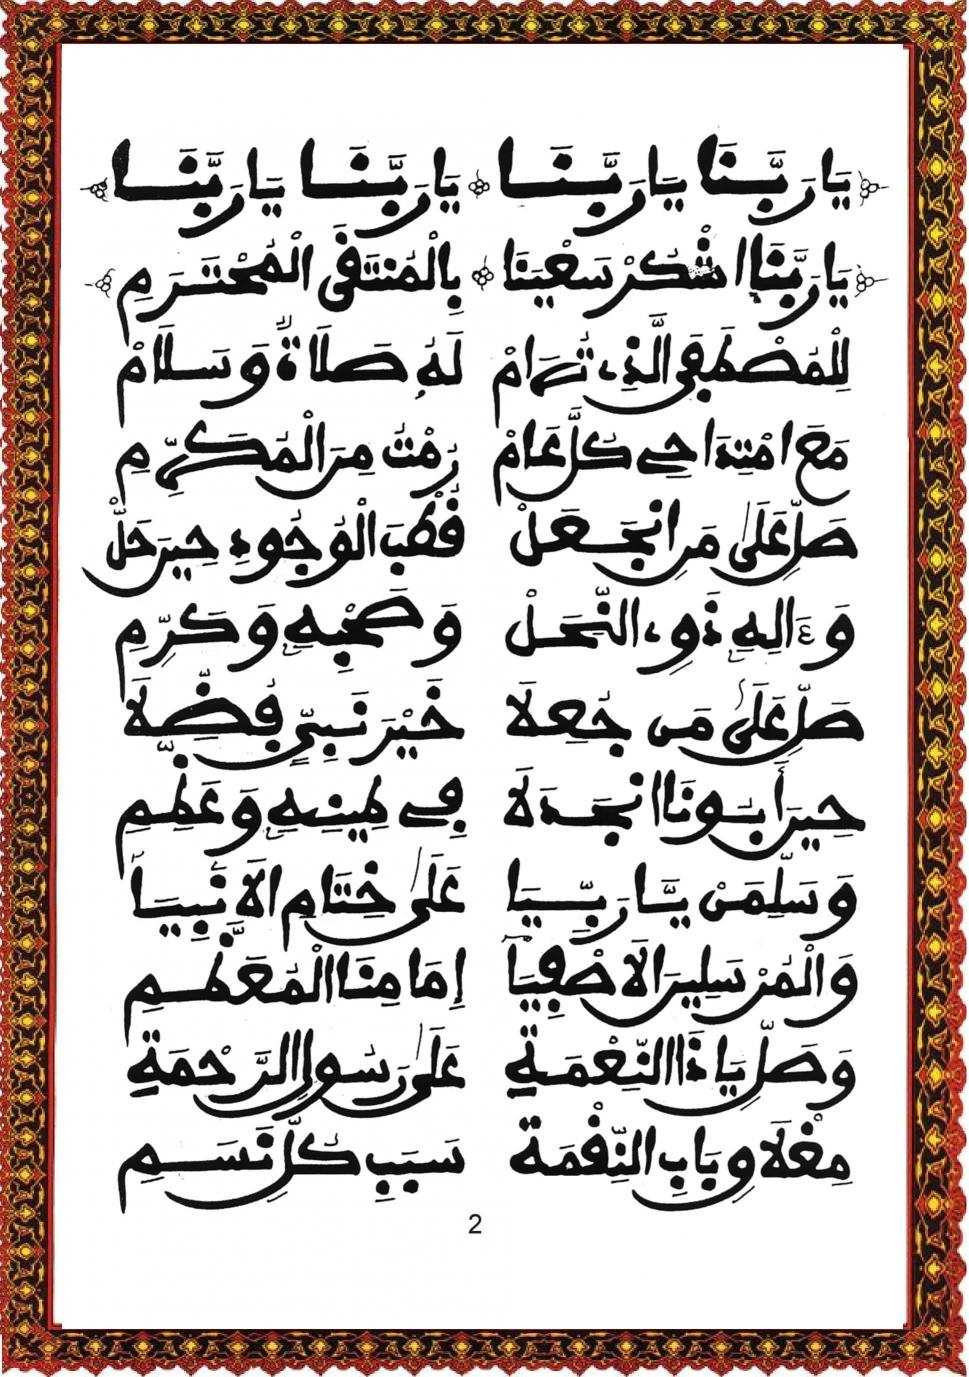 يَا رَبَّنَا يَا رَبَّنَا يَا رَبَّنَا يَا رَبَّنَا
يَا رَبَّنَا اشْكُرْ سَعْيَنَا بِالْمُنتَقَى الْمُحْتَرَمِ
لِلْمُصْطَفَى الَّذِي تُرَامْ لَهُ صَلَاةٌ وَسَلَامْ
مَعَ امْتِدَاحِي كُلَّ عَامْ رُمْتُ مِنَ الْمُكَرِّمِ
صَلِّ عَلَى مَنِ انْجَعَلْ قُطْبَ الْوُجُودِ حِينَ حَلّْ
وَءَالِهِ ذَوِي النِّحَلْ وَصَحْبِهِ وَكَرِّمِ
صَلِّ عَلَى مَن جُعِلَا خَيْرَ نَبِيٍّ فُضِّلَا
حِينَ أَبُونَا انْجَدَلَا فِي طِينِهِ وَعَظِّمِ
وَسَلِّمَنْ يَا رَبِّيَا عَلَى خِتَامِ الَانْبِيَا
وَالْمُرْسَلِينَ الَاصْفِيَا إِمَامِنَا الْمُعَظَّمِ
وَصَلِّ يَا ذَا النِّعْمَةِ عَلَى رَسُولِ الرَّحْمَةِ
مِغْلَاقِ بَابِ النِّقْمَةِ سَبَبِ كُلِّ نَسَمِ
2